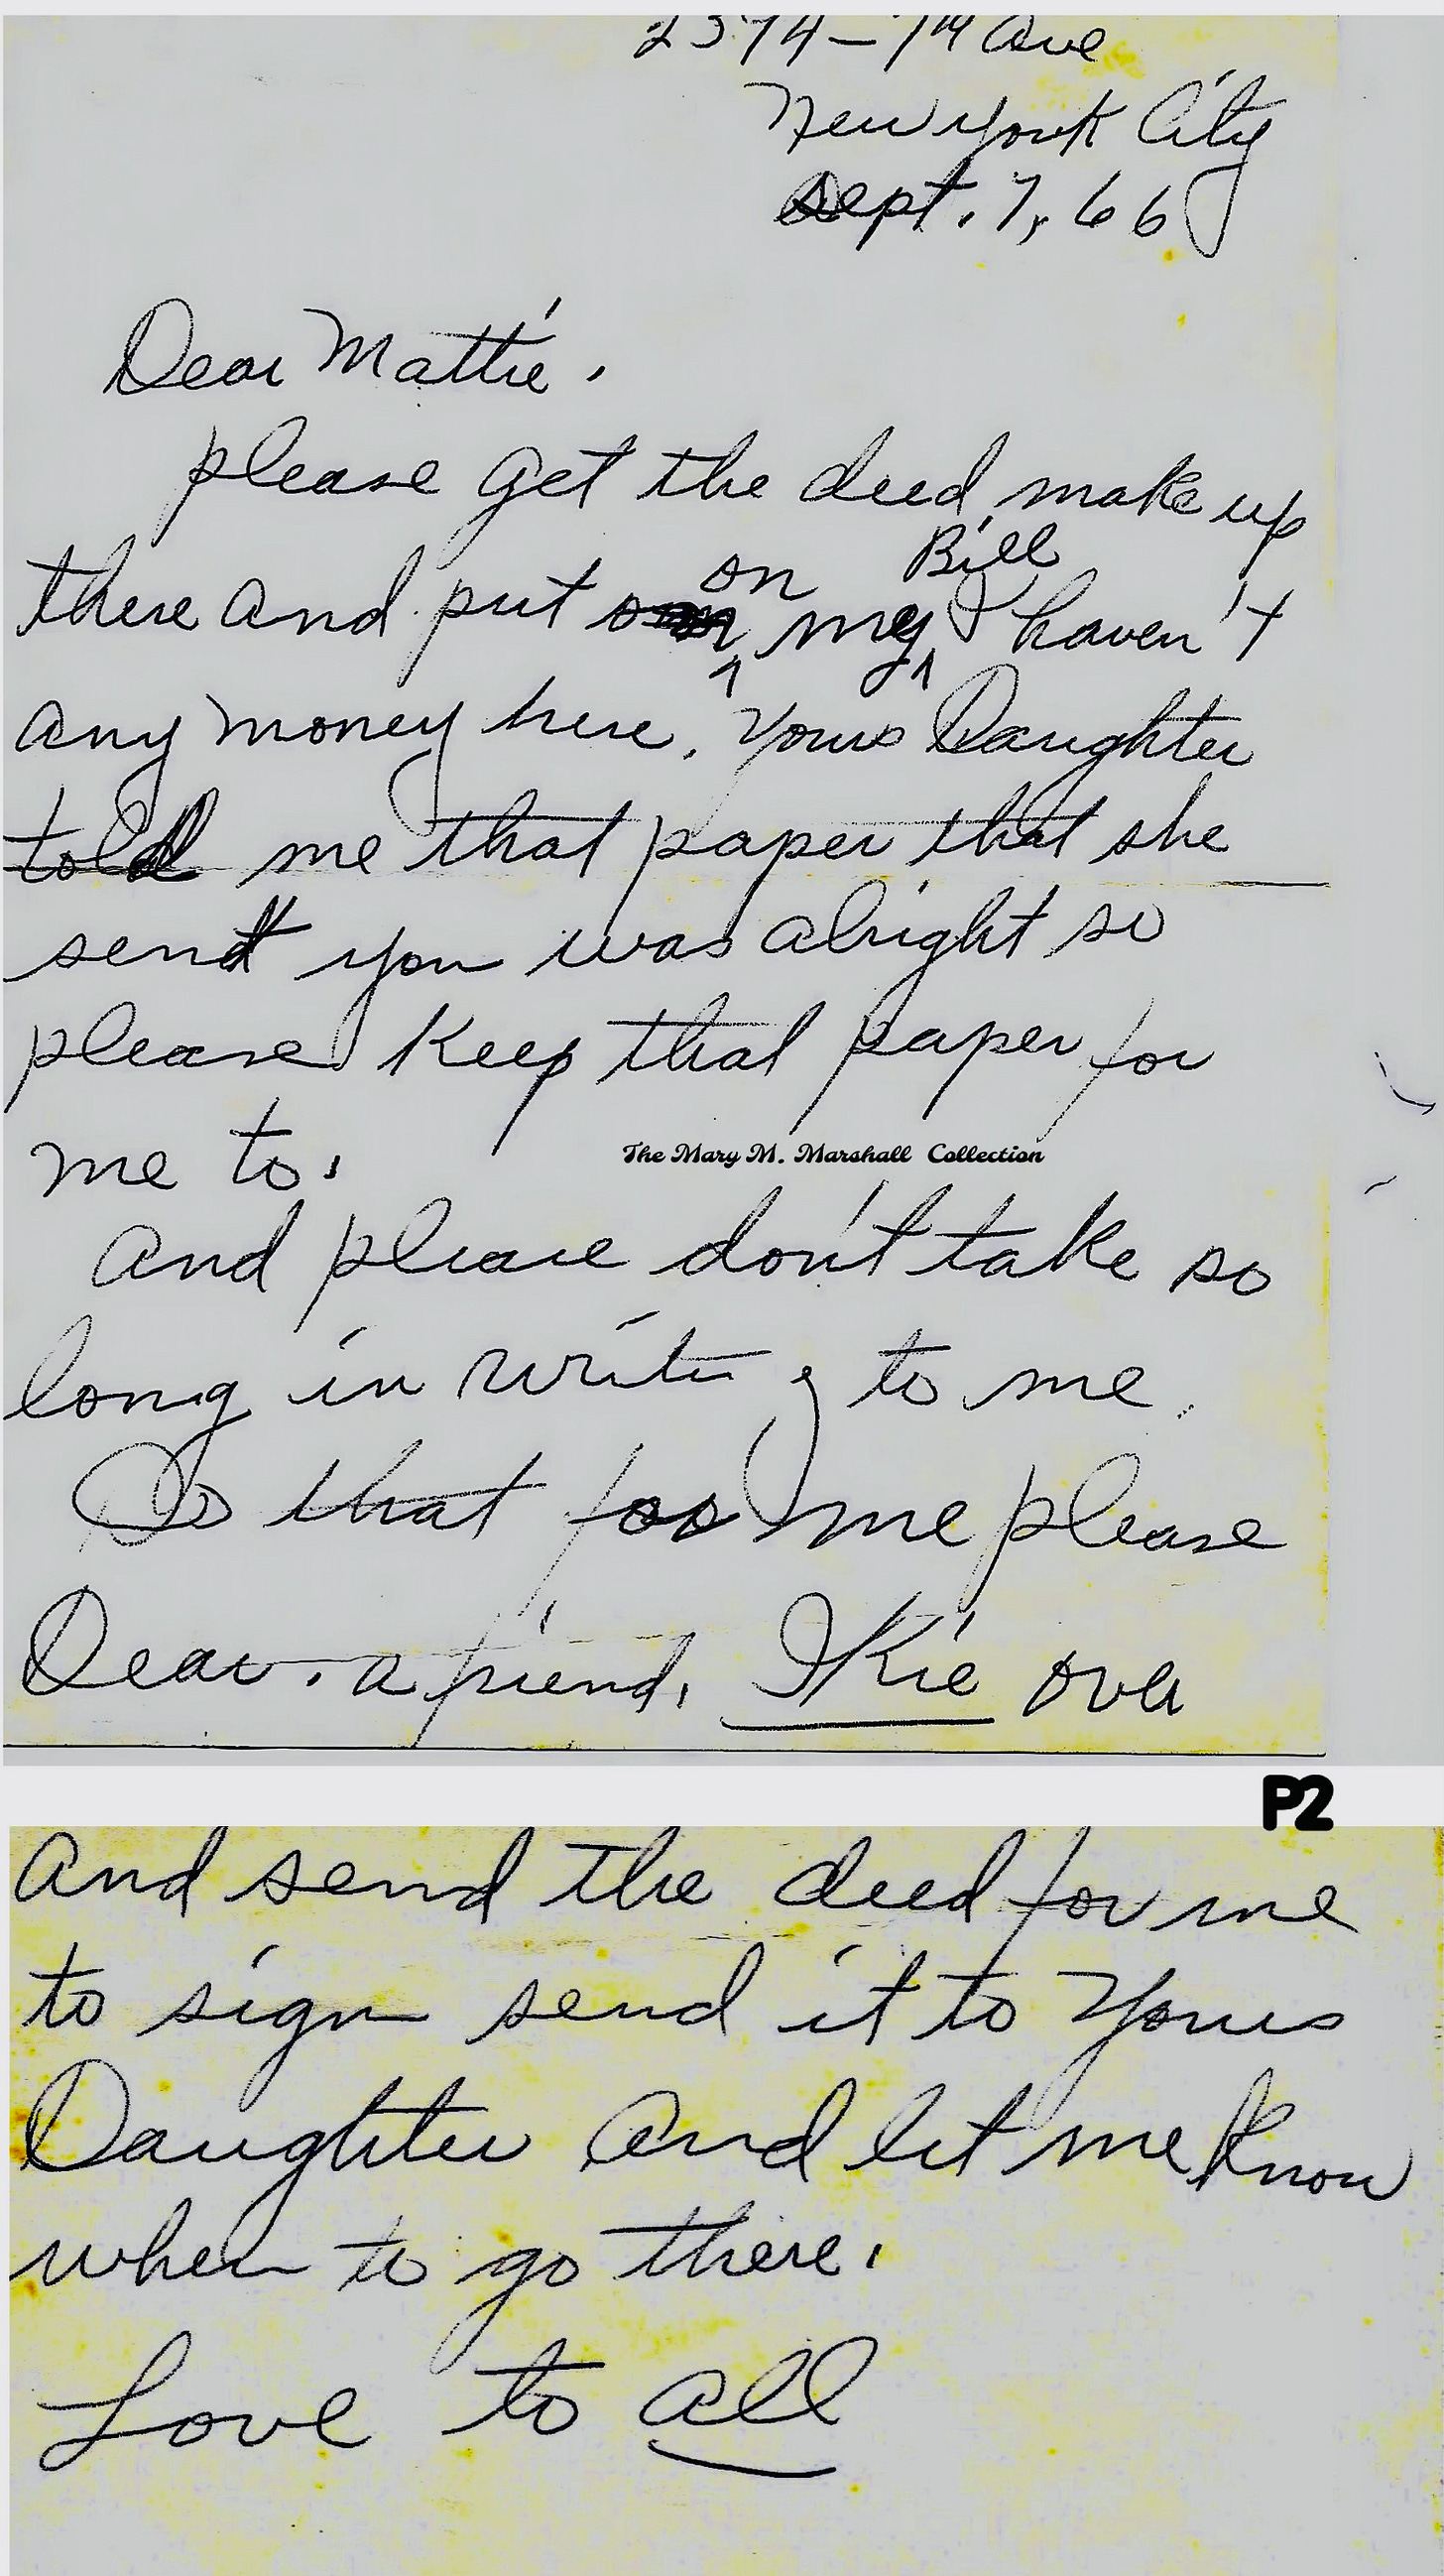 2374 - 7th Ave
New York City
Sept. 7, 66
Dear Mattie.
please get the deed make up
there and put on my Bill I haven't
any money here. Yours Daughter
told me that paper that she
send you was alright so
please Keep that paper for
me to.
and please don't take so
long in writing to me.
Do that for me please
Dear. a friend. IKie over
The Mary M. Marshall Collection
P2
and send the deed for me
to sign send it to Yours
Daughter and let me know
when to go there.
Love to all